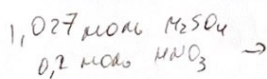 1,027 моль H2SO4
0,2 моль HNO3 →